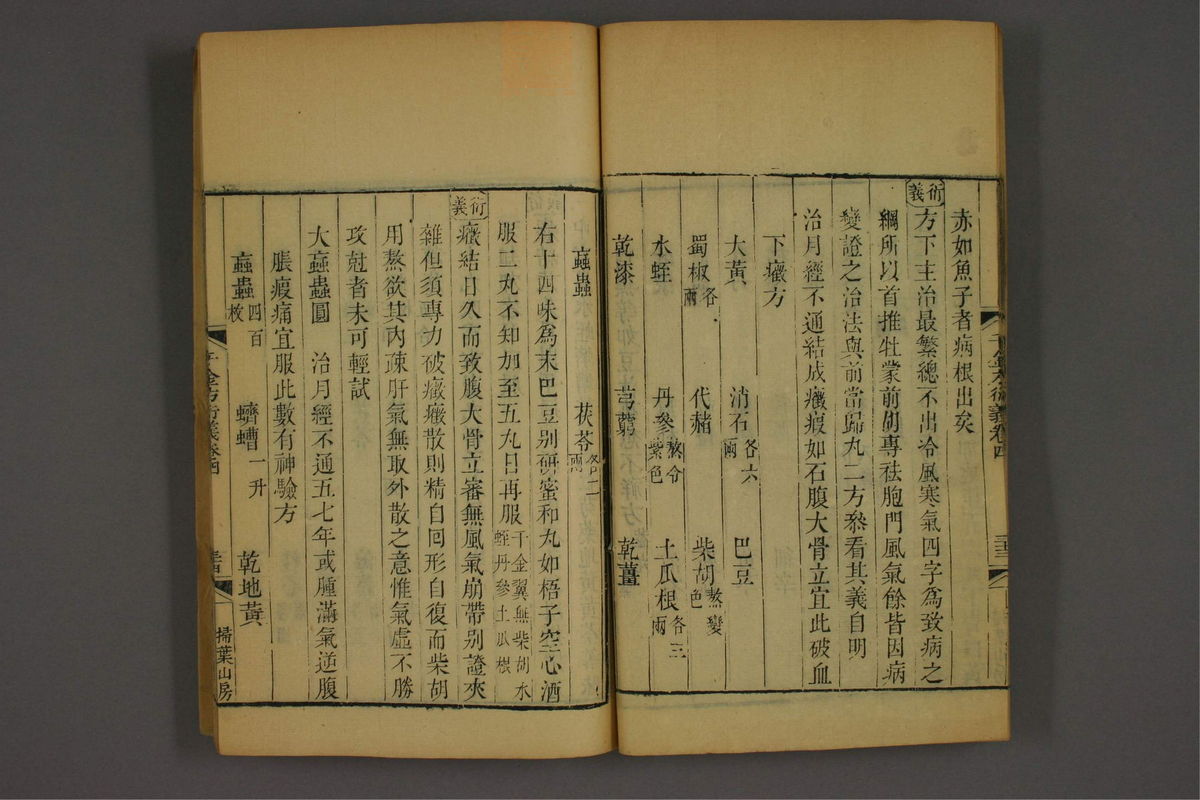 赤如魚子者病根出矣
衍義
方下主治最繁總不出冷風寒氣四字爲致病之
綱所以首推牡蒙前胡專祛胞門風氣餘皆因病
變證之治法與前當歸丸二方叅看其義自明
治月經不通結成癥瘕如石腹大骨立宜此破血
下癥方
大黃 消石各六兩 巴豆
蜀椒各一兩 代赭 柴胡熬變色
水蛭 丹參熬令紫色 土瓜根各三兩
乾漆 芎藭 乾薑
䖟蟲 茯苓各二兩
右十四味爲末巴豆别研蜜和丸如梧子空心酒
服二丸不知加至五丸日再服千金翼無柴胡水蛭丹參土瓜根
衍義
癥結日久而致腹大骨立審無風氣崩帶别證夾
雜但須專力破癥癥散則精自回形自復而柴胡
用熬欲其內疎肝氣無取外散之意惟氣虛不勝
攻尅者未可輕試
大䖟蟲圓 治月經不通五七年或腫滿氣逆腹
脹瘕痛宜服此數有神驗方
䖟蟲四百枚 蠐螬一升 乾地黃
千金方衍義卷四
掃葉山房